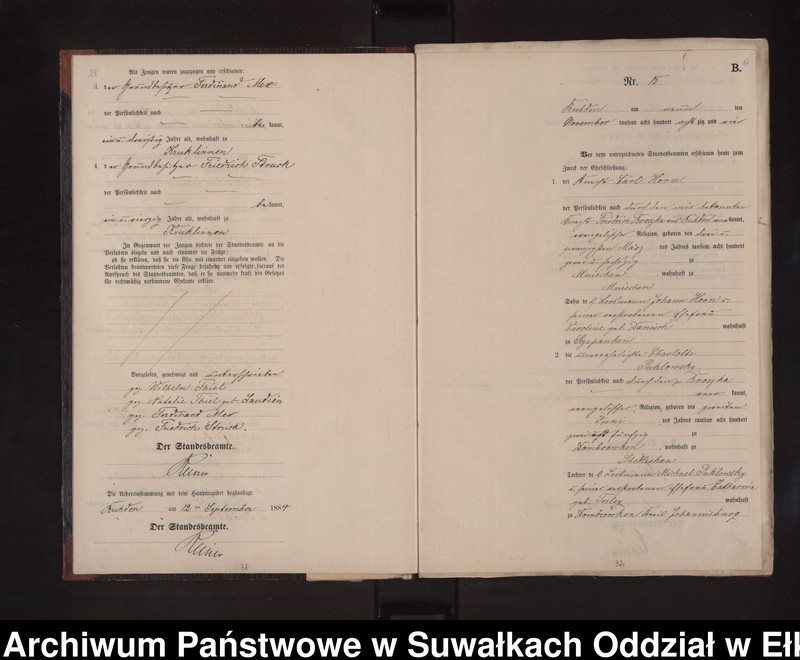 Als Zeugen waren zugezogen und erschienen:
3. der Grundbesitzer Ferdinand Mex
der Persönlichkeit nach
be kannt,
ein u. dreißig Jahre alt, wohnhaft zu
Kruklinnen
4. der Grundbesitzer Friedrich Struck
der Persönlichkeit nach
bekannt,
ein u. vierzig Jahre alt, wohnhaft zu
Kruklinnen
In Gegenwart der Zeugen richtete der Standesbeamte an die
Verlobten einzeln und nach einander die Frage:
ob sie erklären, daß sie die Ehe mit einander eingehen wollen. Die
Verlobten beantworteten diese Frage bejahend und erfolgte hierauf der
Ausspruch des Standesbeamten, daß er sie nunmehr kraft des Gesetzes
für rechtmäßig verbundene Eheleute erkläre.
Vorgelesen, genehmigt und unterschrieben
gez. Wilhelm Thiel
gez. Natalie Thiel geb. Laudien
gez. Ferdinand Mex
gez. Friedrich Struck.
Der Standesbeamte.
Die Uebereinstimmung mit dem Hauptregister beglaubigt
am 12ten September 1884
Der Standesbeamte.
31
B.
Nr. 15
am neun ten
November tausend acht hundert acht zig und vier
Vor dem unterzeichneten Standesbeamten erschienen heute zum
Zweck der Eheschließung:
1. der Knecht Carl Horn
der Persönlichkeit nach durch den mir bekannten
Knecht Friedrich aus anerkannt,
evangelischer Religion, geboren den drei u.
zwanzigsten März des Jahres tausend acht hundert
zwei u. sechszig zu
Mniechen, wohnhaft zu
Mniechen
Sohn des Losmann Johann Horn u.
seiner verstorbenen Ehefrau
Caroline geb. wohnhaft
zu Szepanken
2. die unverehelichte Charlotte
Puklowsky
der Persönlichkeit nach durch den p.
aner kannt,
evangelischer Religion, geboren den zweiten
Juni des Jahres tausend acht hundert
zwei und fünfzig zu
, wohnhaft zu
Tochter des Losmann Michael Puklowsky
u. seiner verstorbenen Ehefrau Catharine
geb. wohnhaft
zu Kreis Johannisburg
32
Archiwum Państwowe w Suwałkach Oddział w Ełk